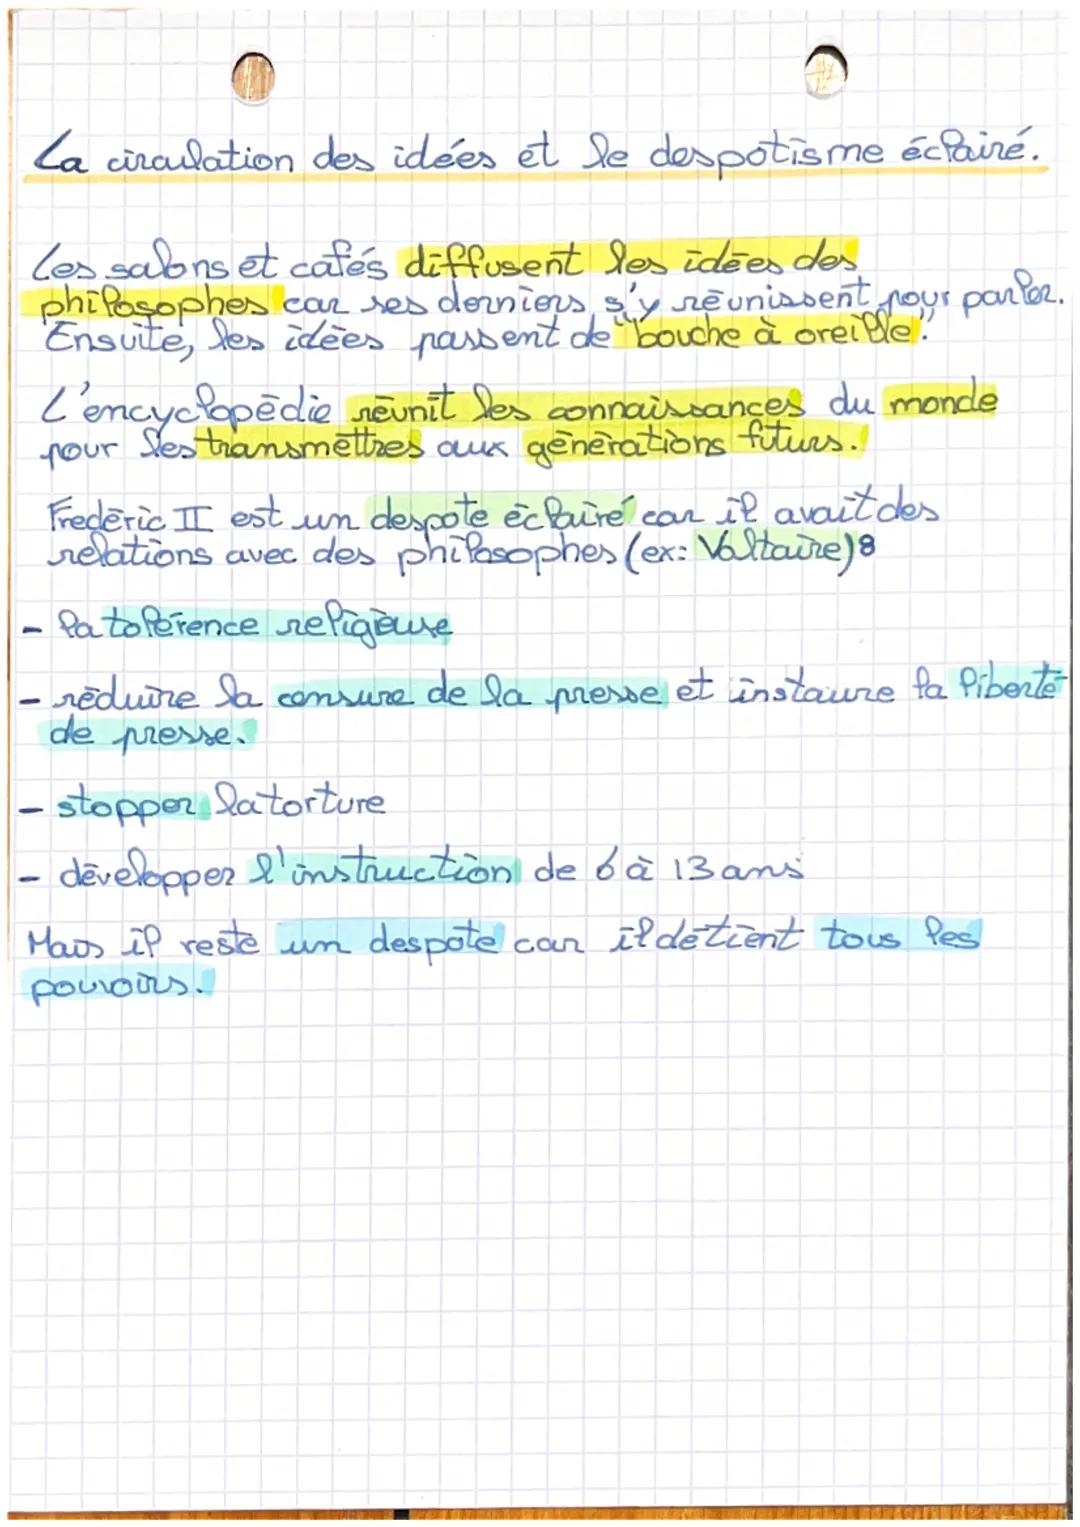 La circulation des idées et le despotisme éclairé.
Les salons et cafés diffusent les idées des
philosophes car ses derniers s'y réunissent pour parler.
Ensuite, les idées passent de "bouche à oreille".
L'encyclopédie réunit les connaissances du monde
pour les transmettres aux générations futurs.
Fredéric II est un despote éclairé car il avait des
relations avec des philosophes (ex: Voltaire) :
- la tolérence religieuse
- réduire la consure de la presse et instaure la liberté
de presse.
- stopper la torture
- développer l'instruction de 6 à 13 ans
Mais il reste un despote car il détient tous les
pouvoirs.